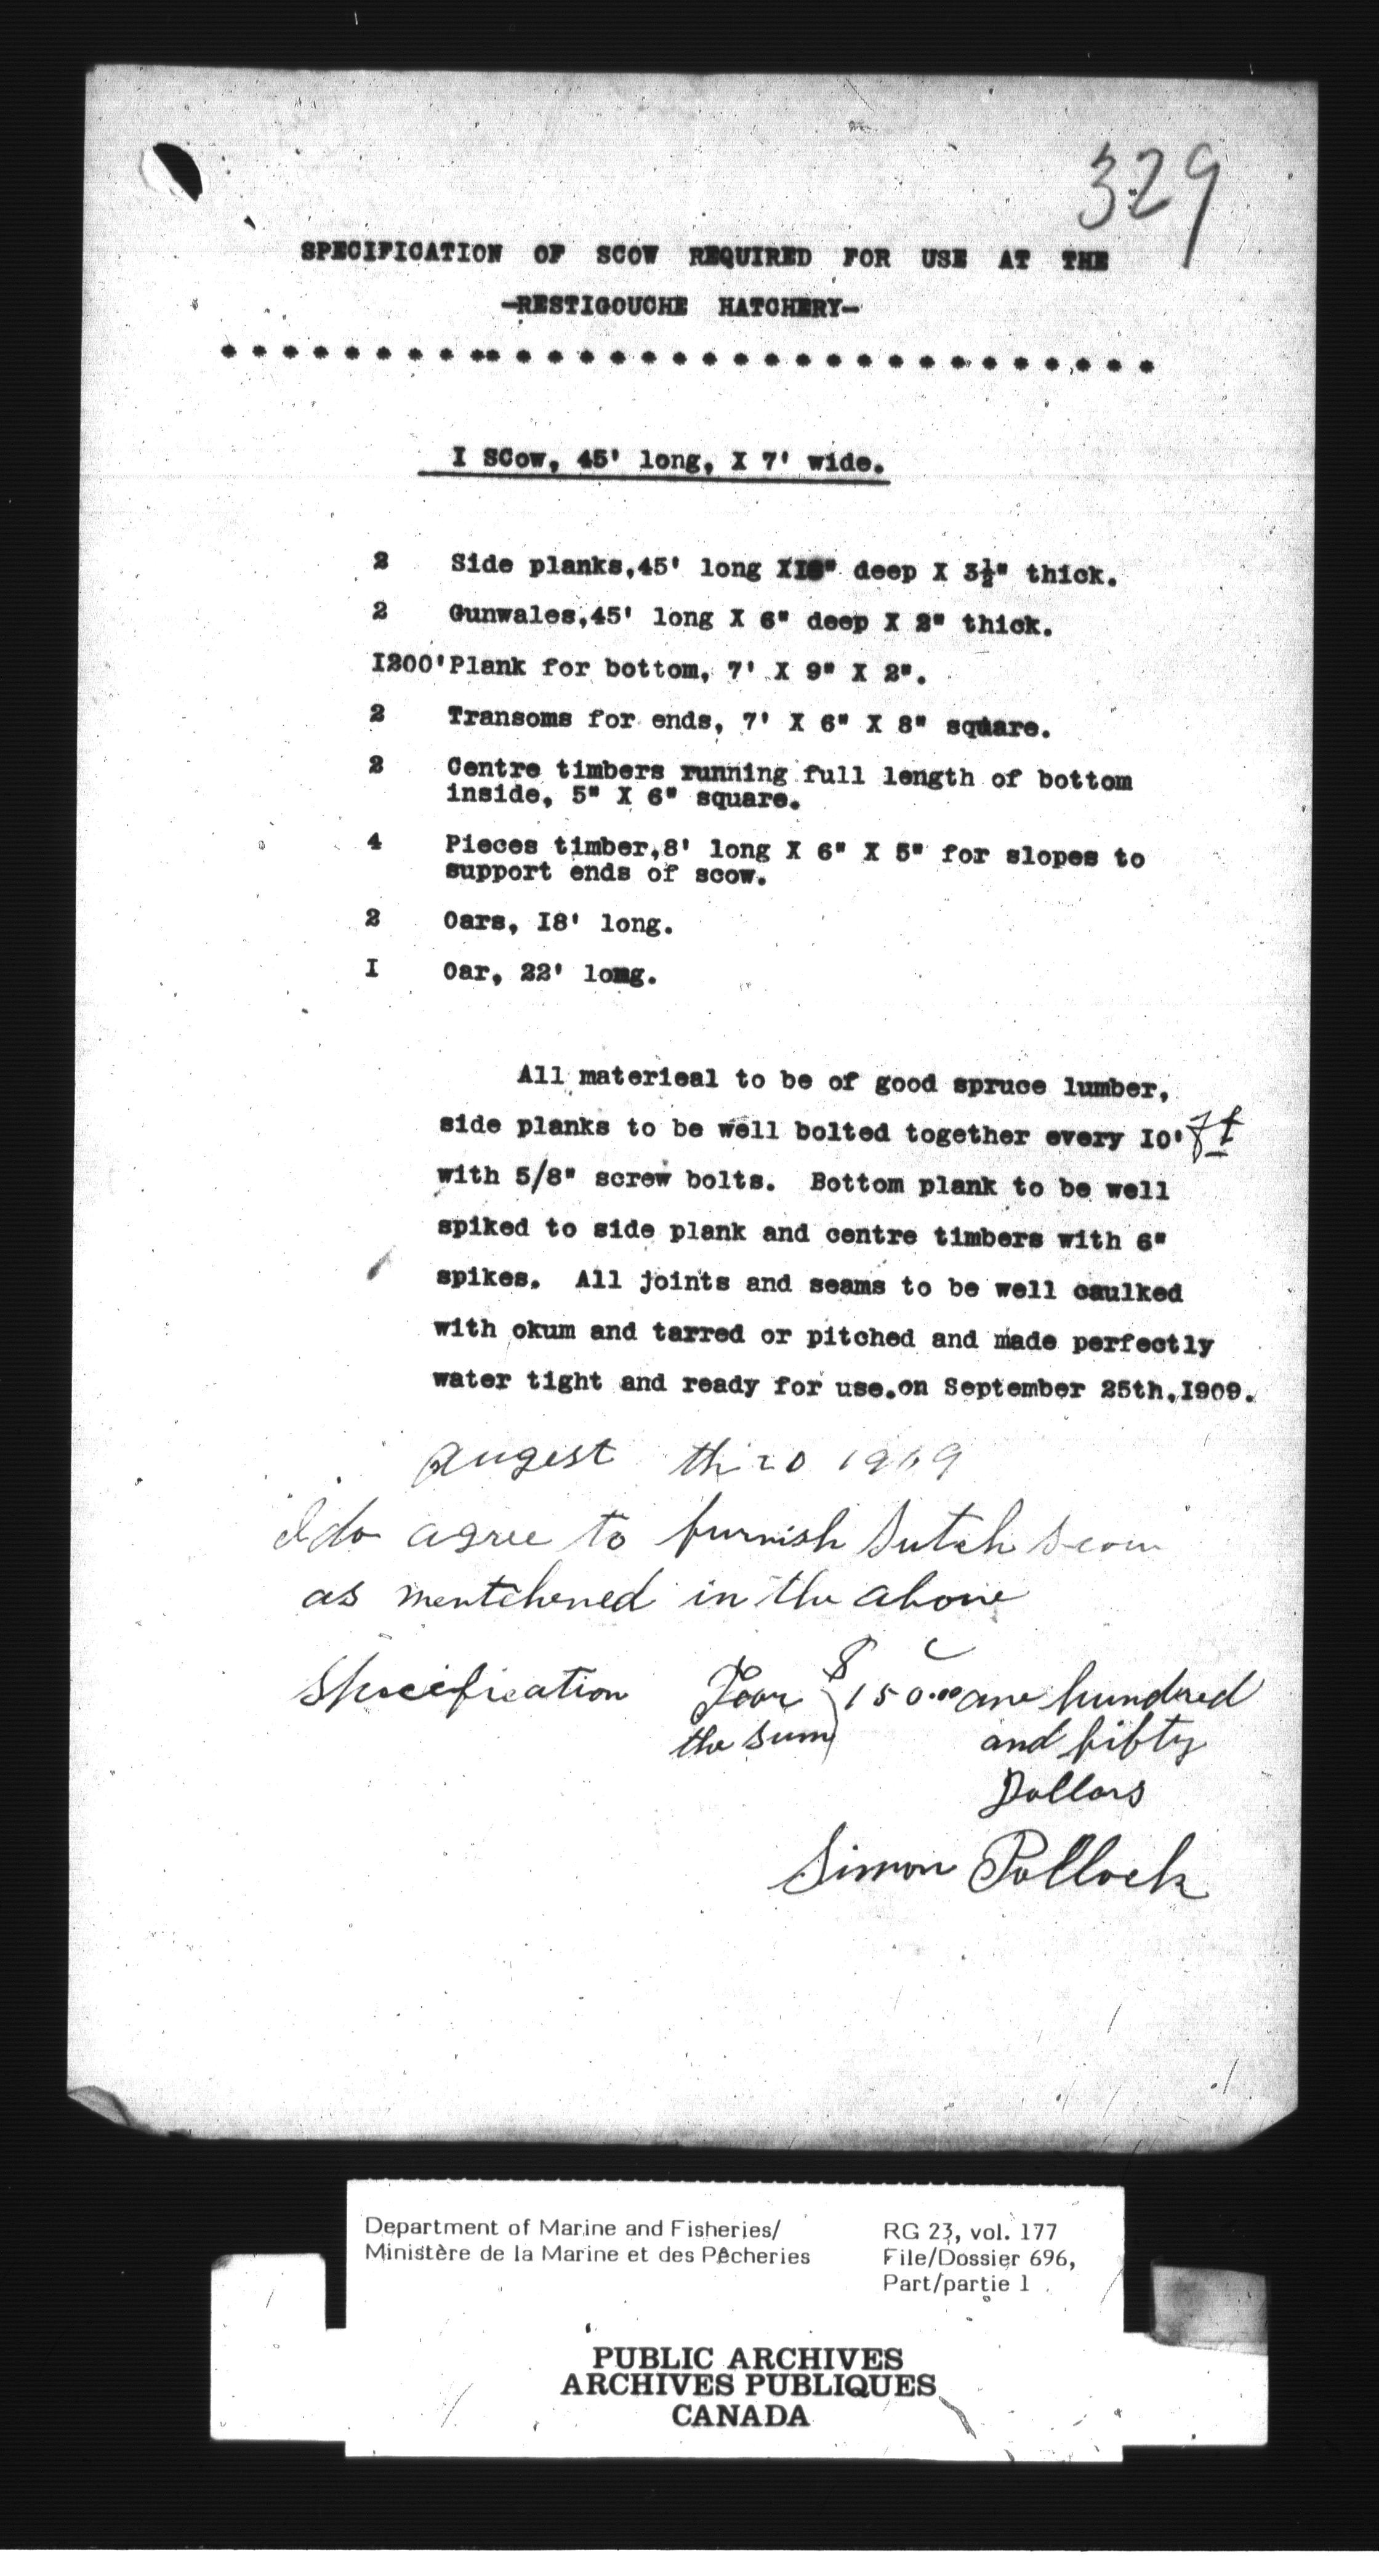 329
SPECIFICATION OF SCOW REQUIRED FOR USE AT THE
-RESTIGOUCHE HATCHERY-
I SCow, 45' long, X 7' wide.
2 Side planks,45' long X deep X 3½" thick.
2 Gunwales,45' long X 6" deep X 2" thick.
I200'Plank for bottom, 7' X 9" X 2".
2 Transoms for ends, 7' X 6" X 8" square.
2 Centre timbers running full length of bottom
inside, 5" X 6" square.
4 Pieces timber,8' long X 6" X 5" for slopes to
support ends of scow.
2 Oars, I8' long.
I Oar, 22' long.
All materieal to be of good spruce lumber,
side planks to be well bolted together every I0' ft
with 5/8" screw bolts. Bottom plank to be well
spiked to side plank and centre timbers with 6"
spikes. All joints and seams to be well caulked
with okum and tarred or pitched and made perfectly
water tight and ready for use.on September 25th,I909.
augest th 20 1909
I do agree to furnish sutch scow
as mentchened in the above
Specification for $150.00 one hundred
the sum and fifty
Dollars
Simon Pollock
Department of Marine and Fisheries/
Ministère de la Marine et des Pêcheries
RG 23, vol. 177
File/Dossier 696,
Part/partie 1
PUBLIC ARCHIVES
ARCHIVES PUBLIQUES
CANADA